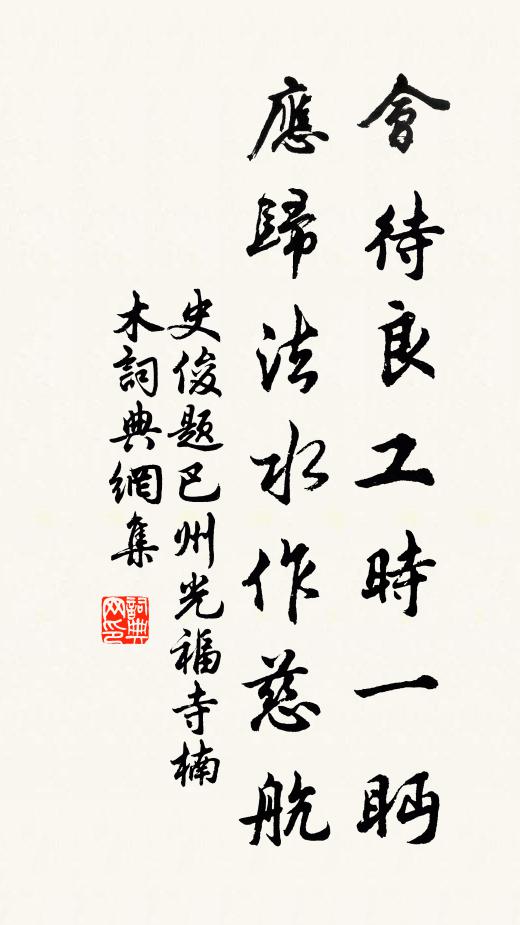 會待良工時一眄
應歸法水作慈航
史俊題巴州光福寺楠
木詞典網集
詞典
网印